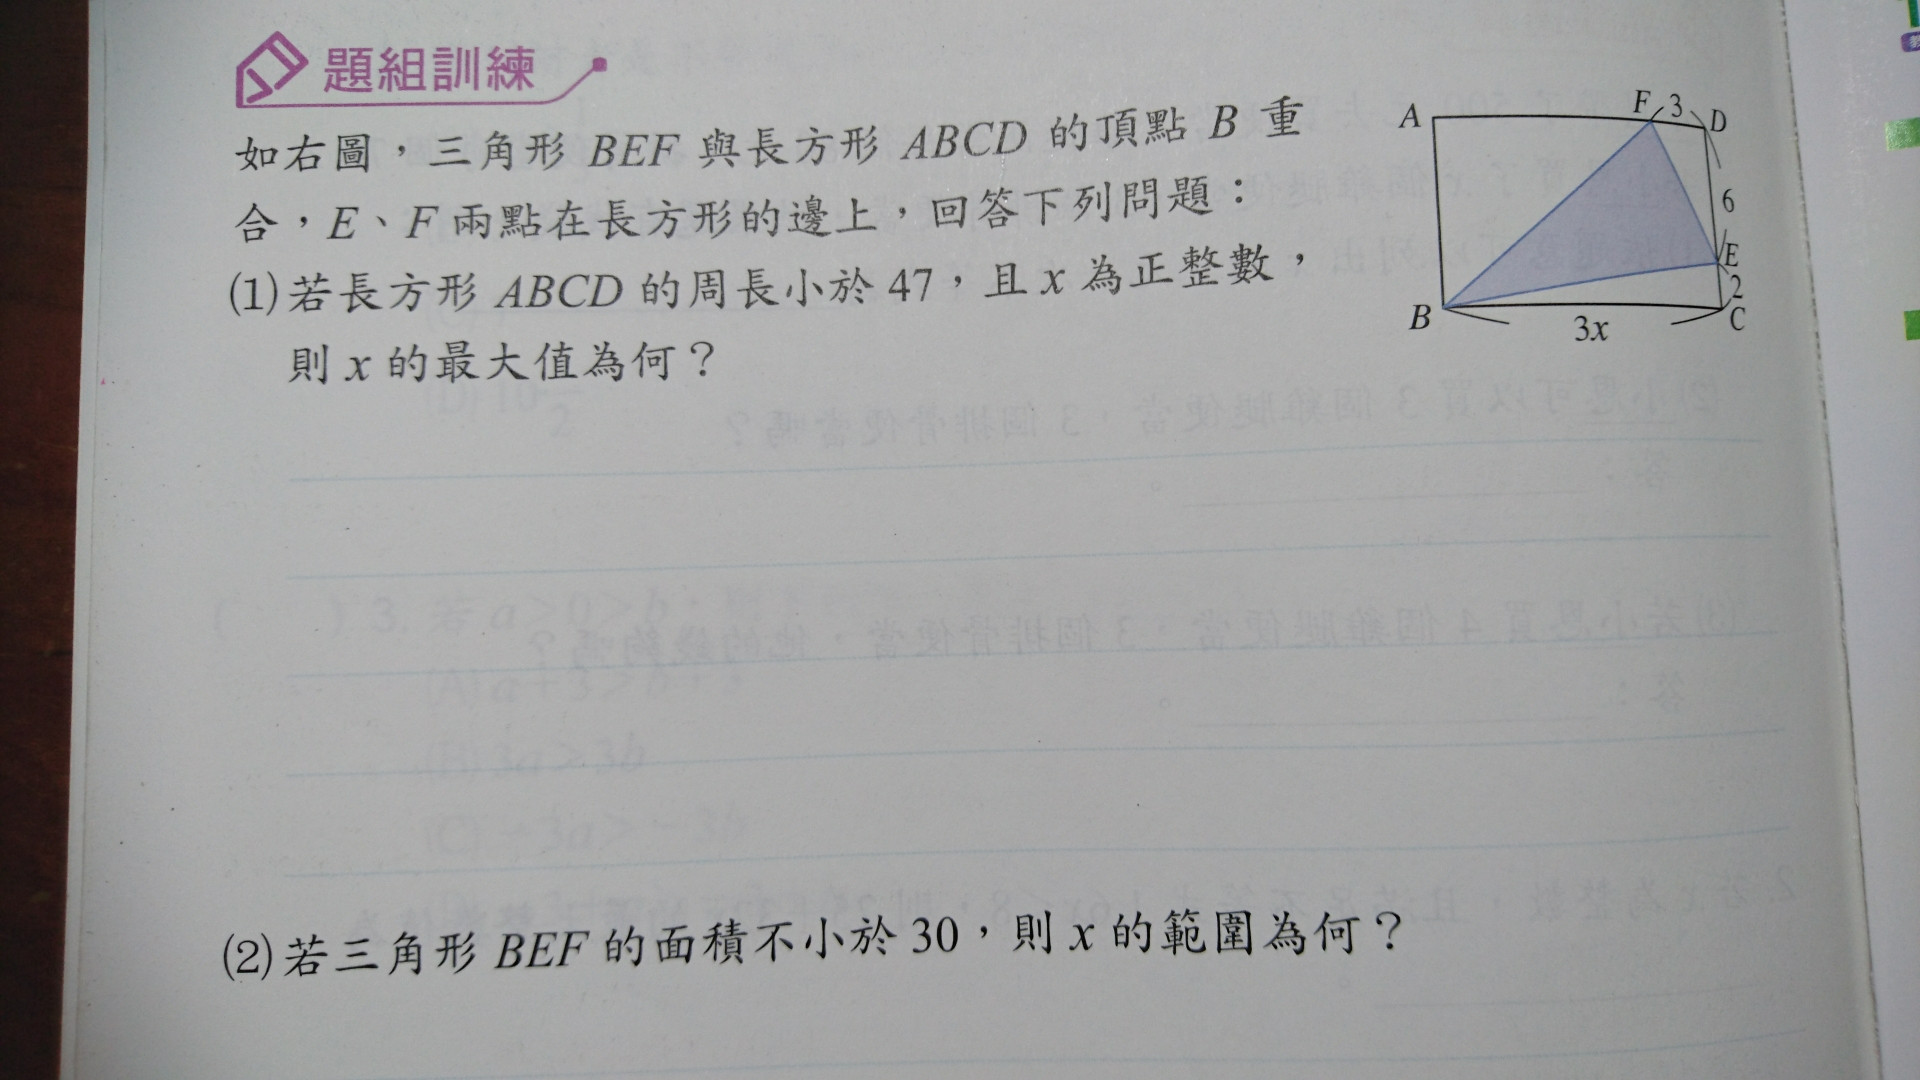 題組訓練
如右圖，三角形 BEF 與長方形 ABCD 的頂點 B 重
合，E、F 兩點在長方形的邊上，回答下列問題：
(1) 若長方形 ABCD 的周長小於 47，且 x 為正整數，
則 x 的最大值為何？
A
F
3
D
6
E
2
B
3x
C
(2) 若三角形 BEF 的面積不小於 30，則 x 的範圍為何？